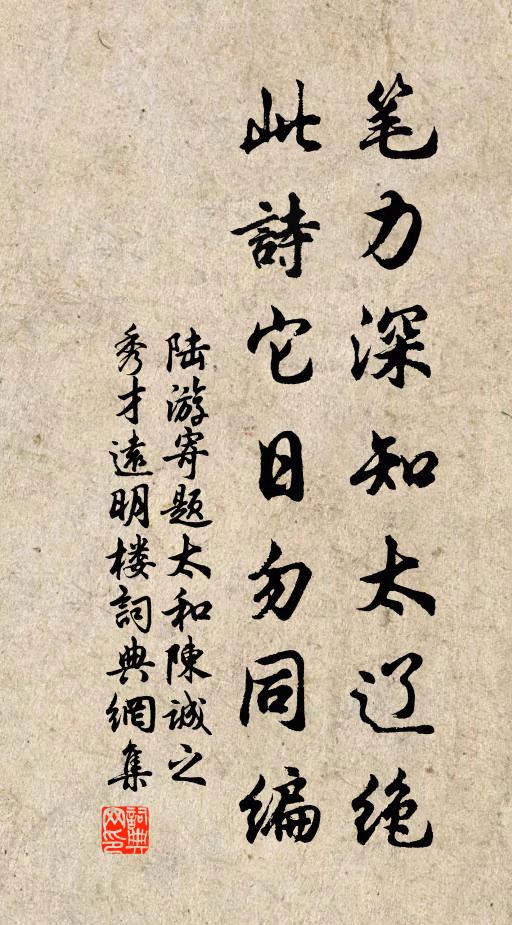 笔力深知太辽绝
此詩它日勿同编
陆游寄题太和陳誠之
秀才遠明楼詞典網集
詞典
网印